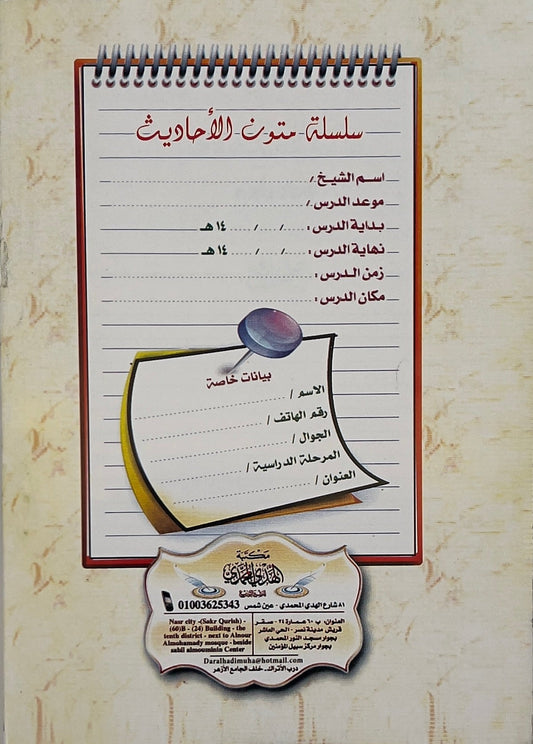 سلسلة متون الأحاديث
اسم الشيخ /
موعد الدرس /
بداية الدرس : / / ١٤ هـ
نهاية الدرس : / / ١٤ هـ
زمن الدرس :
مكان الدرس :
بيانات خاصة
الاسم /
رقم الهاتف /
الجوال /
المرحلة الدراسية /
العنوان /
مكتبة
الهدي المحمدي
01003625343
٨١ شارع الهدي المحمدي - عين شمس
العنوان: ب ٦٠ عمارة ٢٤ - صقر
قريش مدينة نصر - الحي العاشر
بجوار مسجد النور المحمدي
بجوار مركز سبيل المؤمنين
Nasr city -(Sakr Qurish) -
(60)B - (24) Building - the
tenth district - next to Alnour
Almohamady mosque - beside
sabil almouminin Center
Daralhadimuha@hotmail.com
درب الأتراك - خلف الجامع الأزهر